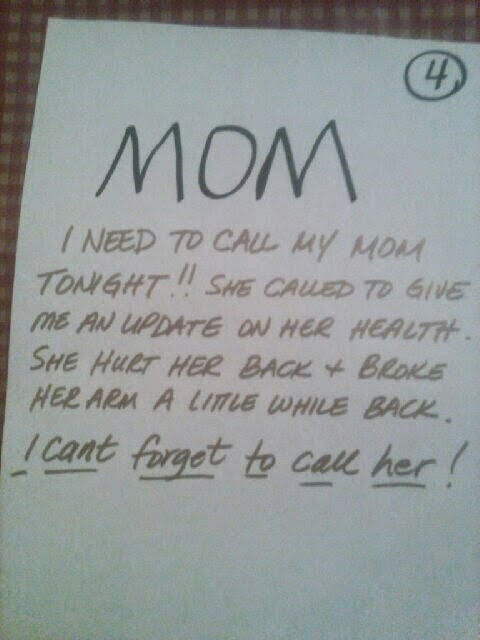 4
MOM
I NEED TO CALL MY MOM
TONIGHT!! SHE CALLED TO GIVE
ME AN UPDATE ON HER HEALTH.
SHE HURT HER BACK + BROKE
HER ARM A LITTLE WHILE BACK.
I cant forget to call her!